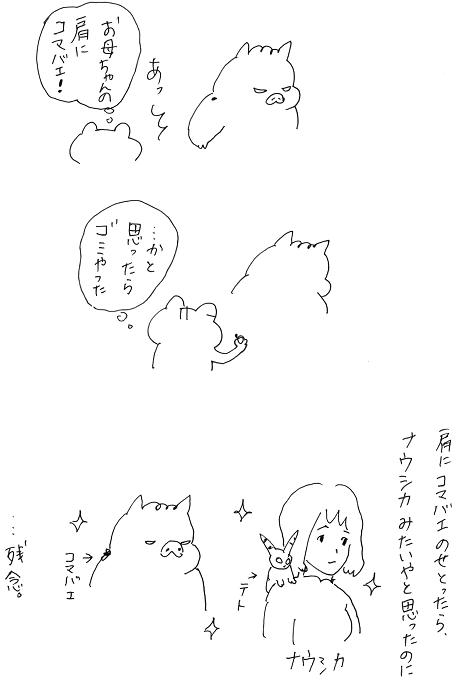 あっ
お母ちゃんの
肩に
コマバエ!
…かと
思ったら
ゴミやった
肩にコマバエのせとったら、
ナウシカみたいやと思ったのに
テト
ナウシカ
コマバエ
…残念。